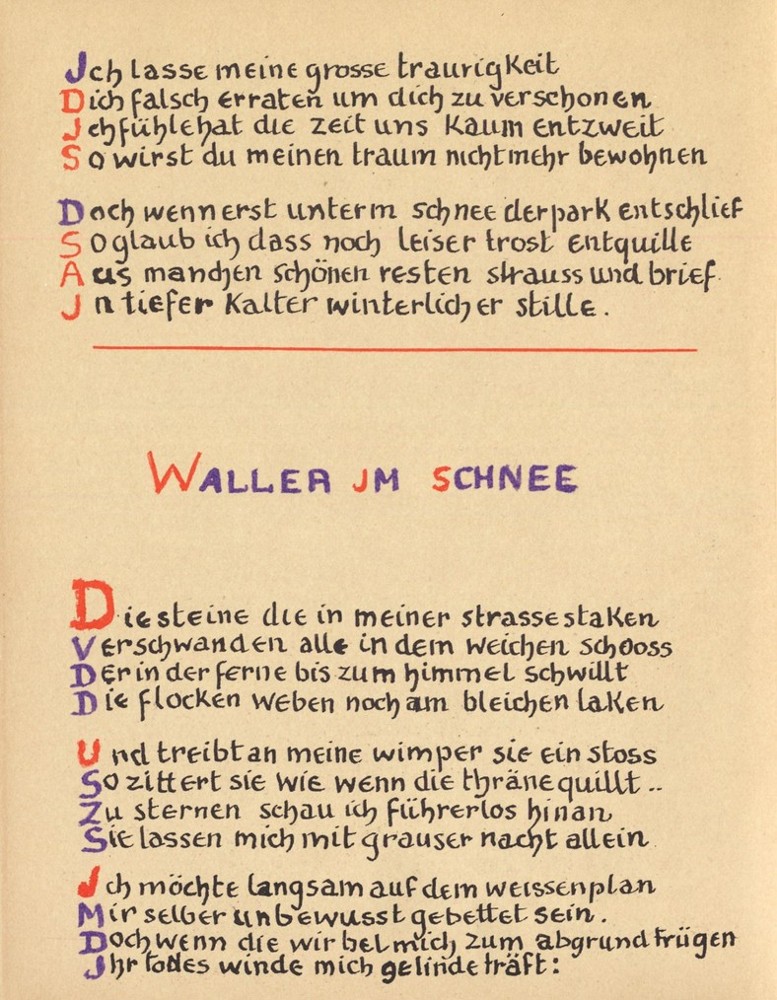 Jch lasse meine grosse traurigkeit
Dich falsch erraten um dich zu verschonen
Jch fühle hat die zeit uns kaum entzweit
So wirst du meinen traum nicht mehr bewohnen
Doch wenn erst unterm schnee der park entschlief
So glaub ich dass noch leiser trost entquille
Aus manchen schönen resten strauss und brief
Jn tiefer kalter winterlicher stille.
WALLER JM SCHNEE
Die steine die in meiner strasse staken
Verschwanden alle in dem weichen schooss
Der in der ferne bis zum himmel schwillt
Die flocken weben noch am bleichen laken
Und treibt an meine wimper sie ein stoss
So zittert sie wie wenn die thräne quillt..
Zu sternen schau ich führerlos hinan
Sie lassen mich mit grauser nacht allein
Jch möchte langsam auf dem weissen plan
Mir selber unbewusst gebettet sein.
Doch wenn die wirbel mich zum abgrund trügen
Jhr todes winde mich gelinde träft: